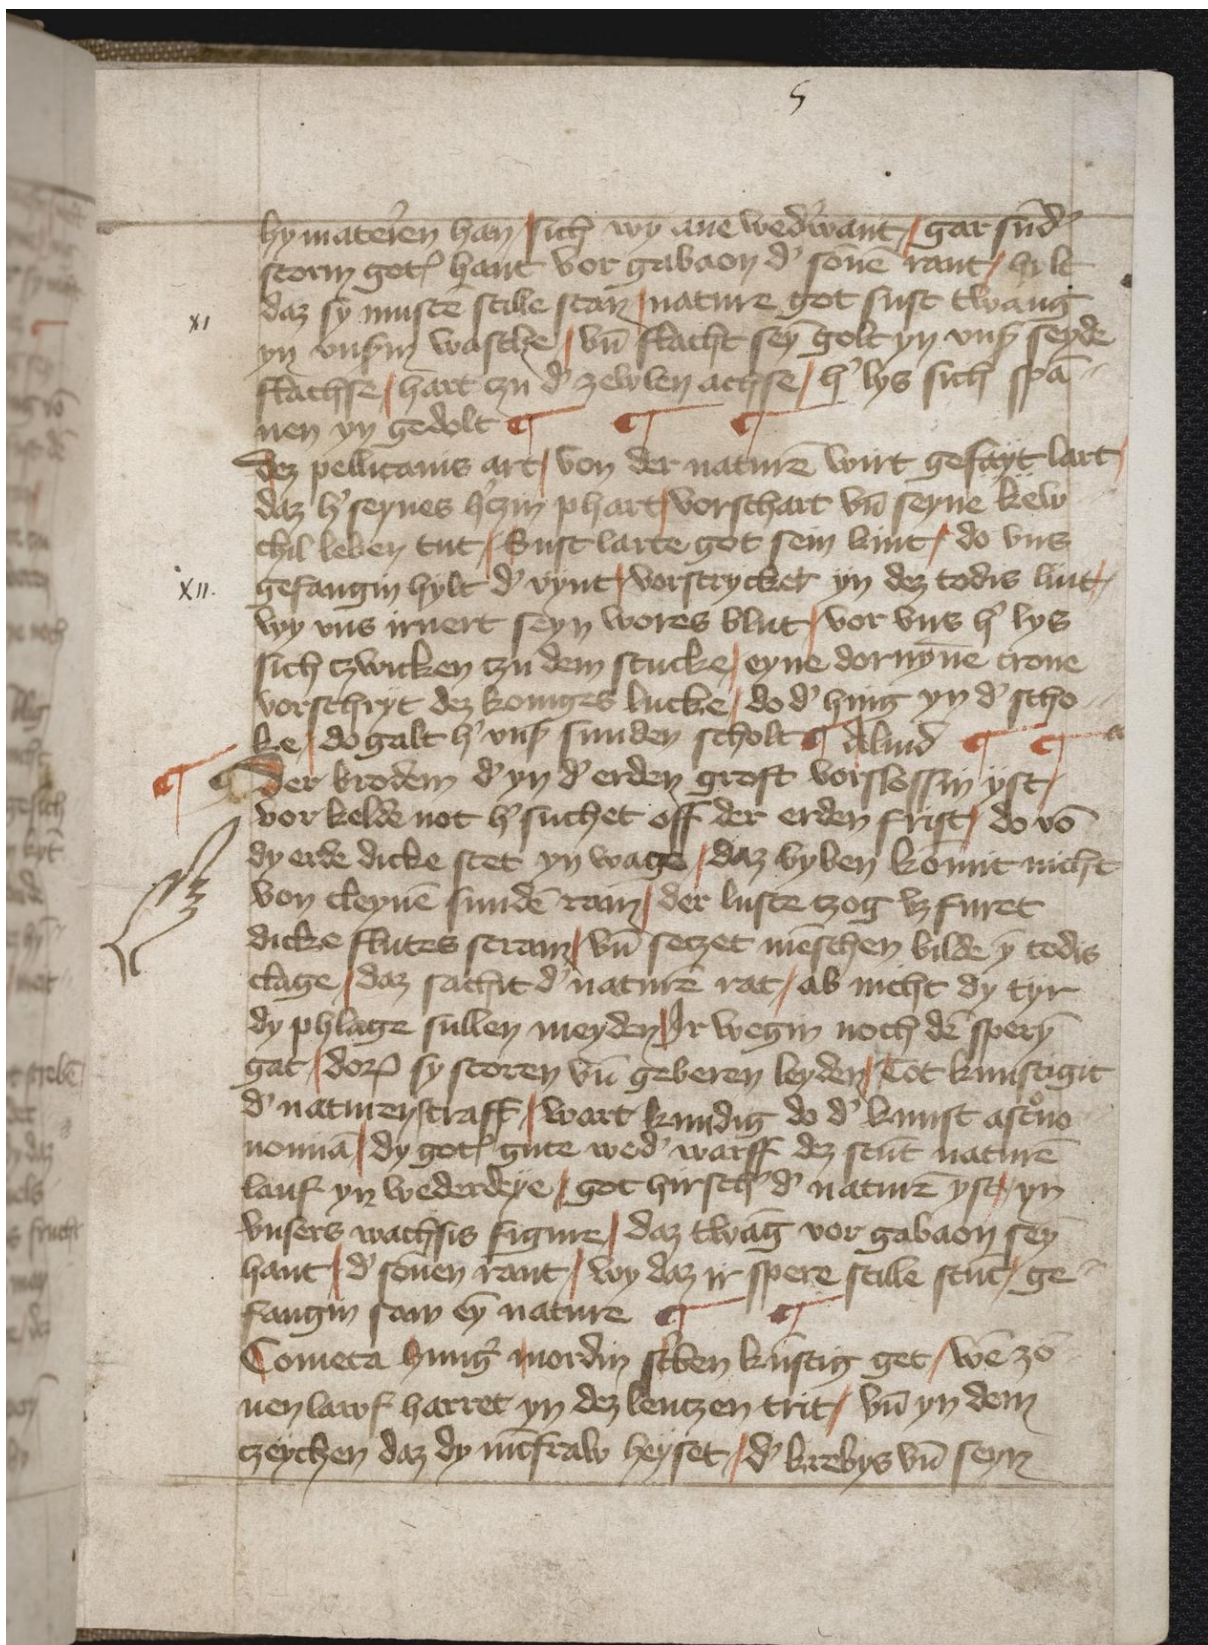 5
hy materien han / sich wy ane wed'want / gar sūd'
storm got hant vor gabaon d' sōnē rant / hilt
daz sy mustē stille stan / nature got sust twang
XI
yn vnsm wachse / vn̄ flacht sey̅ golt yn vns seyde
flachse / hart czu d' zewlen achse / h' lys sich spā
nen yn gedolt ¶ ¶ ¶
Dez pellicanis art / von der naturē wirt gesayt lart /
daz h' seynes h'czin phart / vorschart vn̄ seyne kew
chil leben tut / Sust larte got sein kint / do vns
XII.
gefangin hylt d' vynt / vorstrycket yn dez todis lint /
wy vns irnert seyn wores blut / vor vns h' lys
sich czwicken czu dem stucke / eyne dornynē crone
vorschryt dez koniges lucke / do d' hing yn d' scho
ke / do galt h' vns sunden scholt ¶ aliud' ¶ ¶
¶ Der krodem d' yn d' erden groft vorslossin yst /
vor kelde not h' suchet off der erden frist / do vō
dy erde dicke stet yn wage / daz byben komit nicht
von cleynē sundē ram / der luste czog vz furet
dicke flutes stram / vn̄ seczet mēschen bilde ȳ todis
clage / daz sachit d' naturē rat / ab nicht dy tyr
dy phlage sullen meyden / Ir wegin noch dē spery̅
gat / dor sy storen vn̄ geberen leyden / Tot kunstigit
d' naturen straff / wart kundig do d' kunst astrono
nomiā / dy got gute wed' warff dez stūt naturē
lauf yn wederdeye / got hirsch' d' naturē yst / yn
vnsers wachsis figure / daz twāg vor gabaon sey̅
hant / d' sonen rant / wy daz ir spere stille stūt / ge
fangin saw ey̅ nature ¶ ¶
Cometa hung' mordin st'ben kūstig get / wē zō
nen lawf harret yn dez lenczen trit / vn̄ yn dem
czeychen daz dy iūcfraw heyset / d' krebys vn̄ seyn